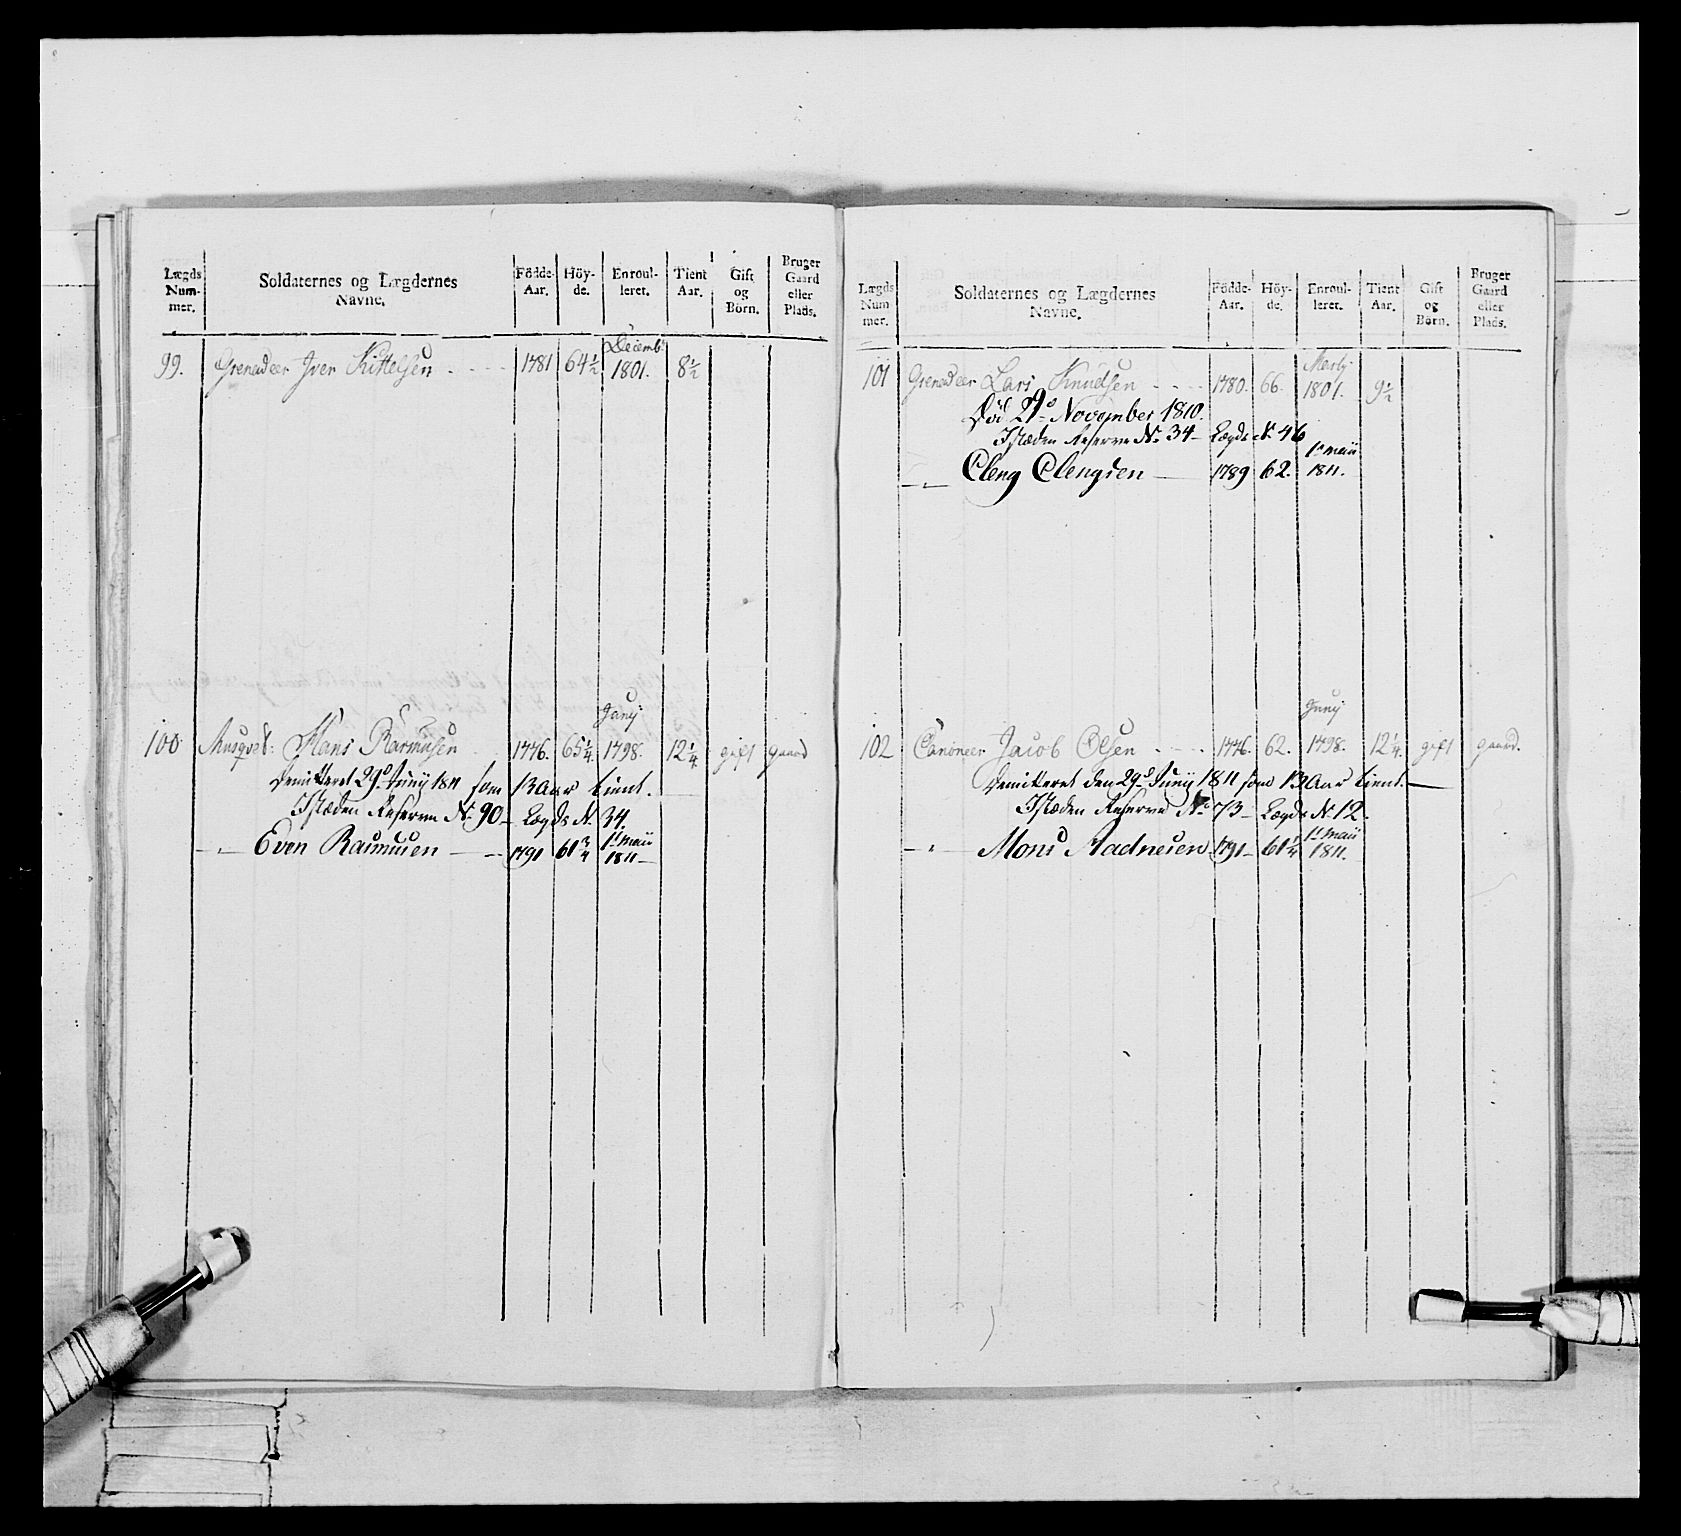 Lægds Num- mer. Soldaternes og Lægdernes Navne. Födde- Aar. Höy- de. Enroul- leret. Tient Aar. Gift og Börn. Bruger Gaard eller Plads.
Decemb:
99. Grenadeer Iver Kittelsen 1781 64½ 1801. 8½
Junij
100 Musqvet: Hans Rasmusen 1776. 65¼ 1798. 12¼ gift gaard
Demitteret 29d Junij 1811 som 13 Aar tient.
Istæden Reserve No 90 - Lægds No 34.
1t maii
-"- Even Rasmusen 1791 61¾ 1811
Lægds Num mer. Soldaternes og Lægdernes Navne. Födde- Aar. Höy- de. Enroul- leret. Tient Aar. Gift og Börn. Bruger Gaard eller Plads.
Martj
101 Grenadeer Lars Knudsen 1780. 66. 1801. 9½
November 1810.
Istæden Reserve No 34 - Lægds No 46
1t maii
-"- Cleng Clengsen 1789 62. 1811.
Junij
102 Canoneer Jacob Olsen 1776. 62. 1798. 12¼ gift gaard.
Demitteret den 29d Junij 1811 som 13 Aar tient.
Istæden Reserve No 73 - Lægds No 12.
1t maii
-"- Mons Aadnesen 1791 1811.